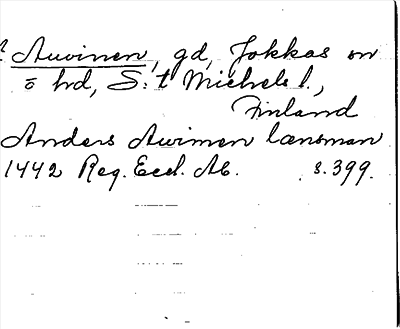 Auvinen, gd, Jokkas sn
o hd, S:t Michels l.,
Finland
Anders Awinen lænsman
1442 Reg. Eccl. Ab. s. 399.